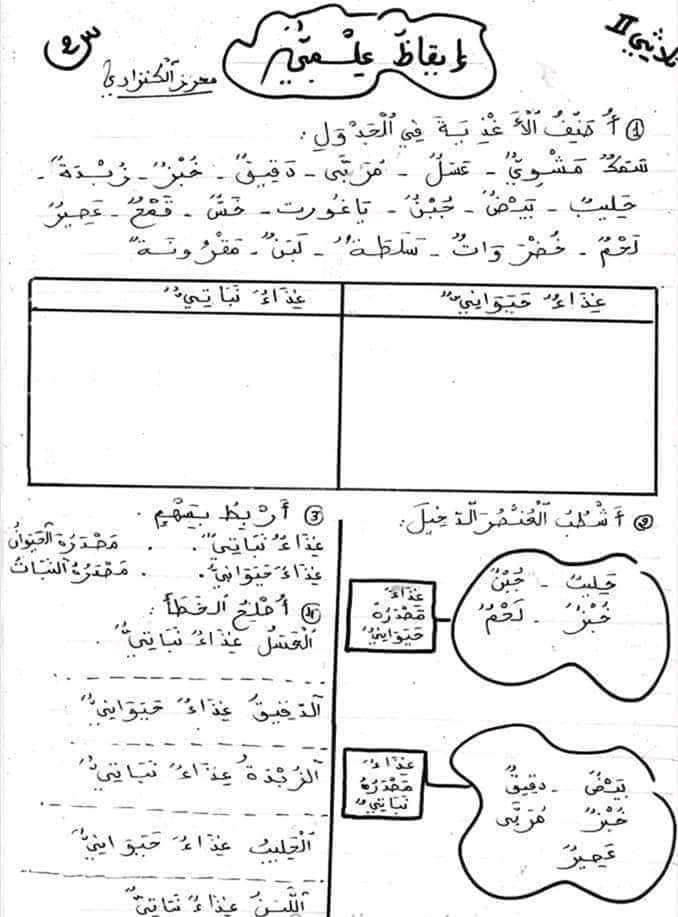 ثلاثي II
إيقاظ علمي
س2
محرز الكنزاري
1) أُصَنِّفُ الْأَغْذِيَةَ فِي الْجَدْوَلِ :
سَمَكٌ مَشْوِيٌّ - عَسَلٌ - مُرَبَّى - دَقِيقٌ - خُبْزٌ - زُبْدَةٌ -
حَلِيبٌ - بَيْضٌ - جُبْنٌ - يَاغُورت - خَسٌّ - قَمْحٌ - عَصِيرٌ
لَحْمٌ - خُضْرَوَاتٌ - سَلَطَةٌ - لَبَنٌ - مَقْرُونَةٌ
غِذَاءٌ حَيَوَانِيٌّ
غِذَاءٌ نَبَاتِيٌّ
2) أَشْطُبُ الْعُنْصُرَ الدَّخِيلَ :
حَلِيبٌ - جُبْنٌ
خُبْزٌ - لَحْمٌ
غِذَاءٌ
مَصْدَرُهُ
حَيَوَانِيٌّ
بَيْضٌ - دَقِيقٌ
خُبْزٌ مُرَبَّى
عَصِيرٌ
غِذَاءٌ
مَصْدَرُهُ
نَبَاتِيٌّ
3) أَرْبِطُ بِسَهْمٍ .
غِذَاءٌ نَبَاتِيٌّ . . مَصْدَرُهُ الْحَيَوَانُ
غِذَاءٌ حَيَوَانِيٌّ . . مَصْدَرُهُ النَّبَاتُ
4) أُصْلِحُ الْخَطَأَ :
الْعَسَلُ غِذَاءٌ نَبَاتِيٌّ .
الدَّقِيقُ غِذَاءٌ حَيَوَانِيٌّ
الزُّبْدَةُ غِذَاءٌ نَبَاتِيٌّ
الْحَلِيبُ غِذَاءٌ حَيَوَانِيٌّ
اللَّبَنُ غِذَاءٌ نَبَاتِيٌّ